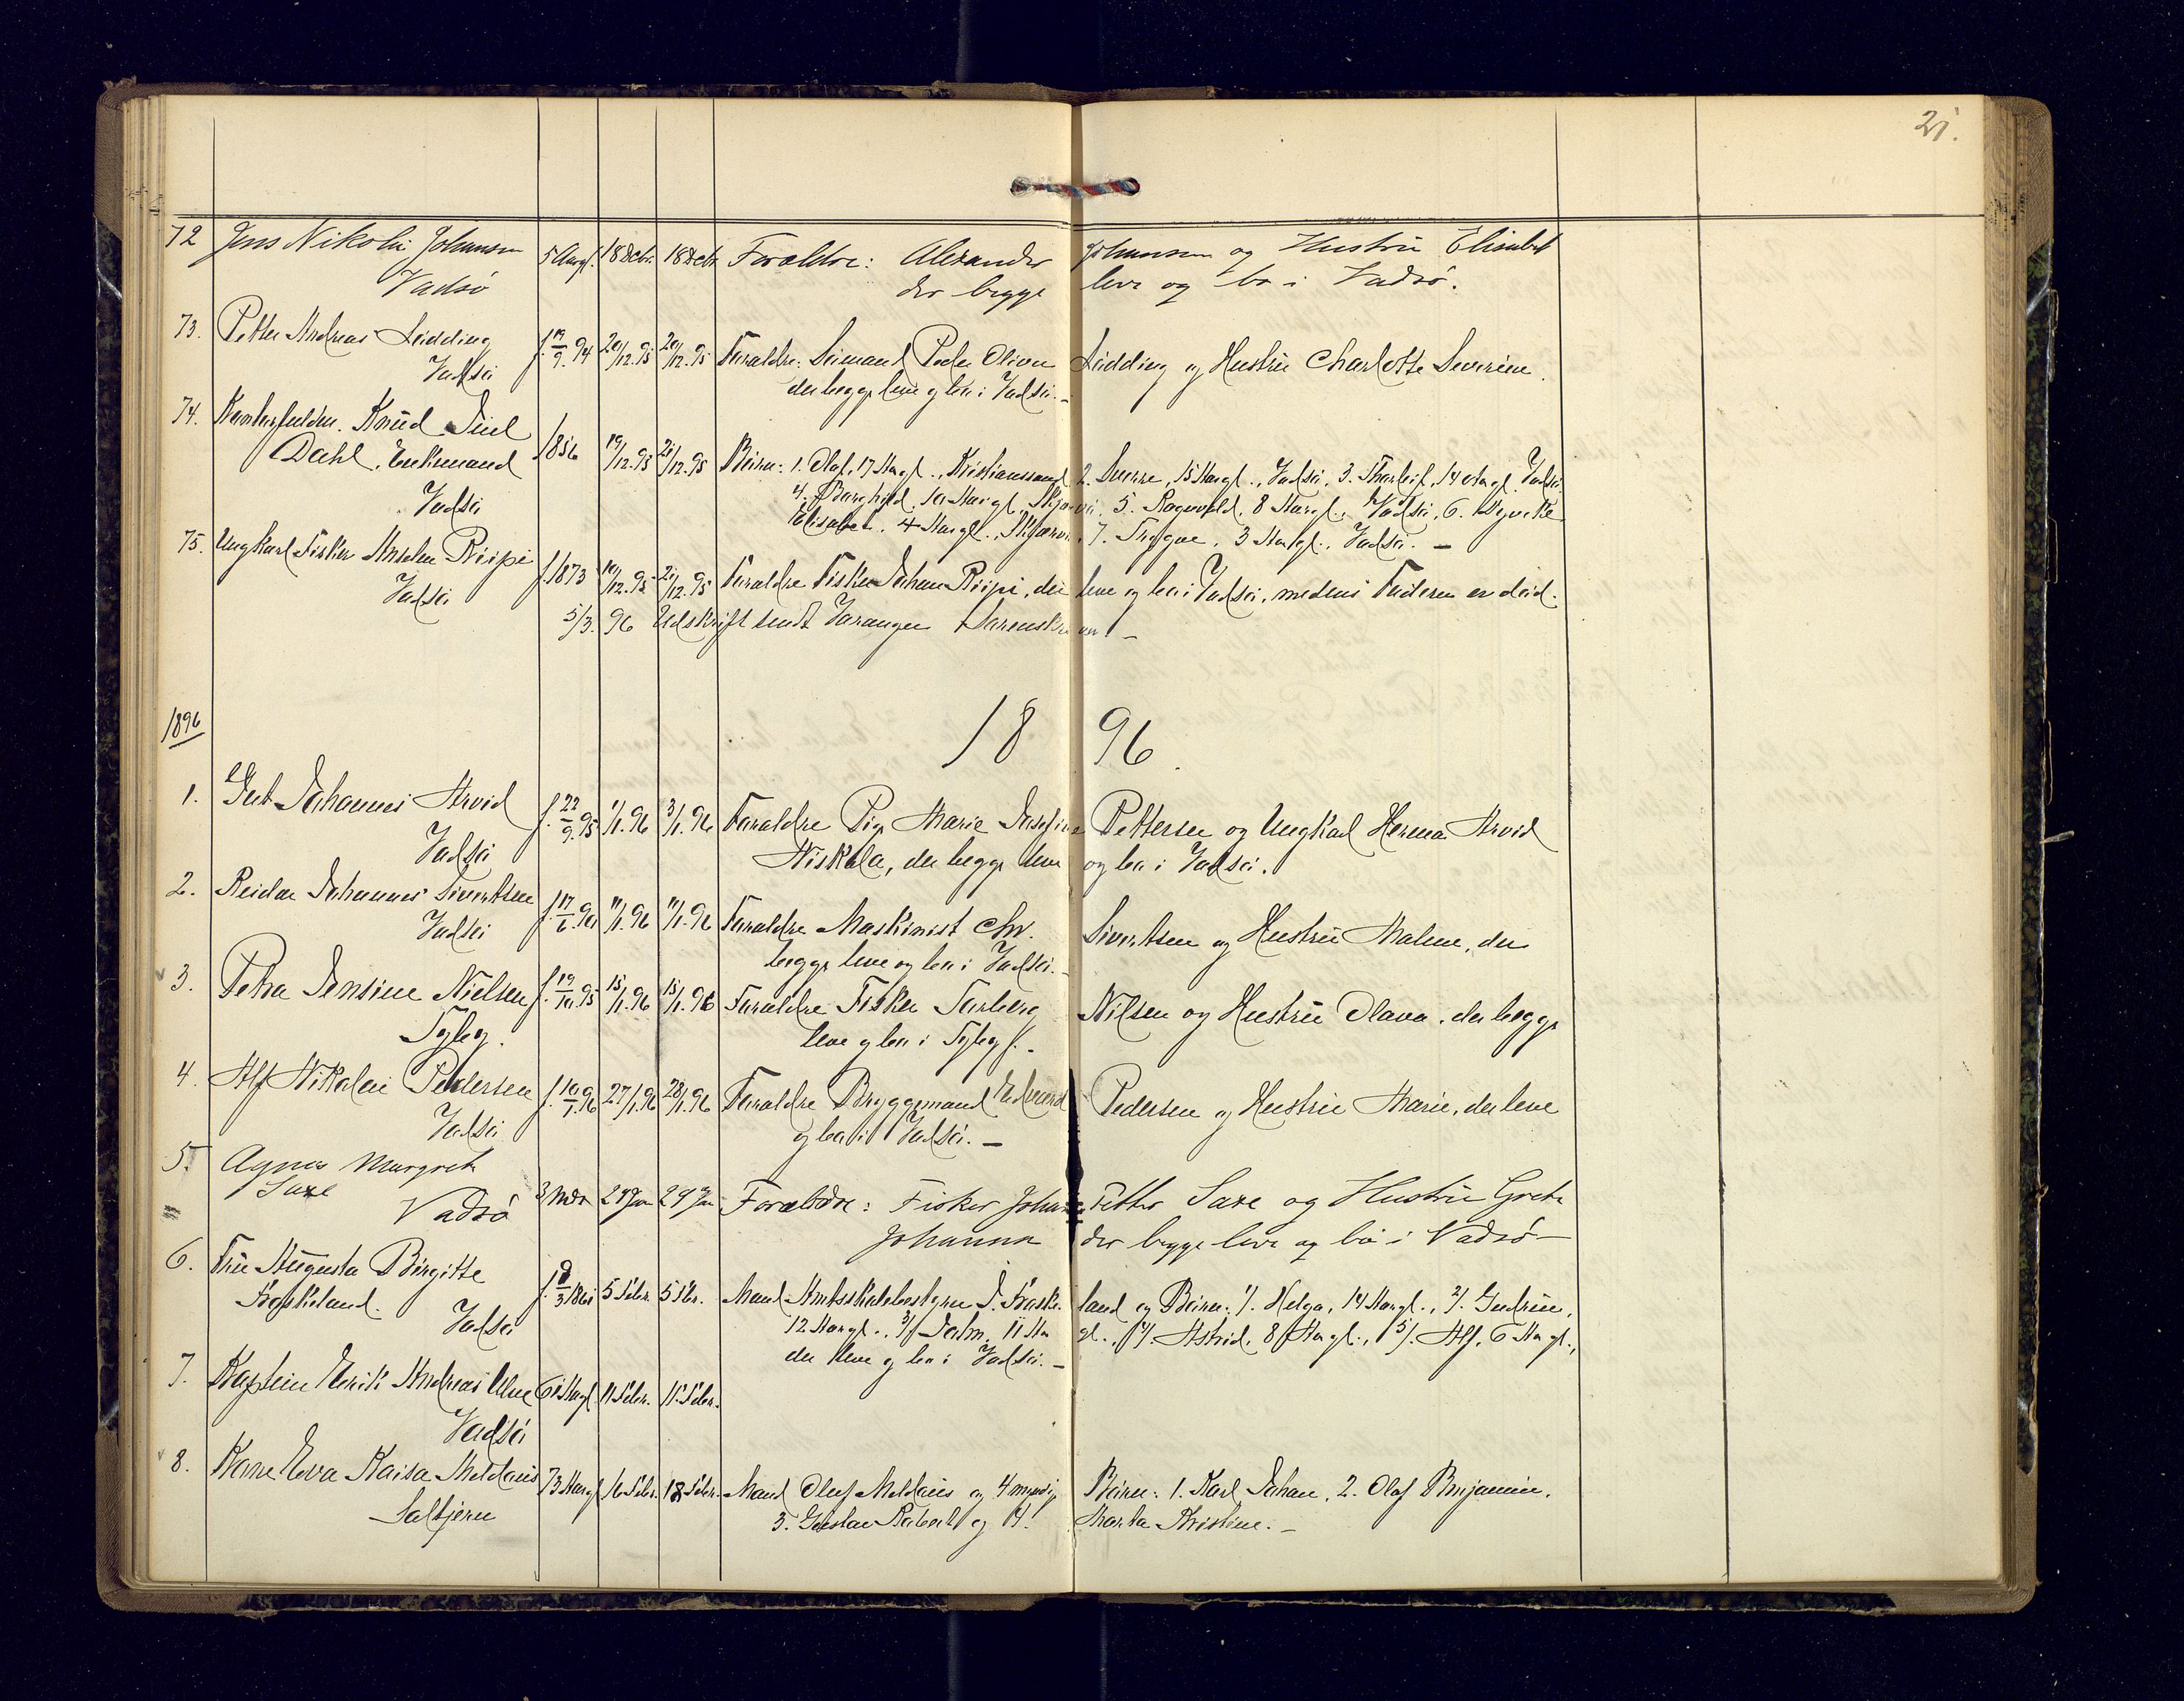 21.
72 Jens Nikolai Johansen 5 Aargl. 18 Decbr. 18 Decbr. Forældre: Alexander Johansen og Hustru Elisabet
Vadsø der begge leve og bo i Vadsø.
73. Petter Andreas Lidding f. 9. 94 20/12.95 20/12.95 Forældre: Sømand Peder Oliver Lidding og Hustru Charlotte Severine
Vadsø der begge leve og bo i Vadsø. —
74. Knud Juel
Dahl, Enkemand 1856 19/12.95 21/12.95 Børn: 1. Olaf, 17 Aar gl., Kristianssand 2. Sverre, 15 Aar gl., Vadsø, 3. Thorleif, 14 Aar gl. Vadsø
Vadsø 4. Borghild, 10 Aar gl. 5. Ragnvald, 8 Aar gl., Vadsø, 6. Dyveke
Elisabet, 4 Aar gl., 7. Trygve, 3 Aar gl., Vadsø. —
75. Ungkarl Fisker Anselm Riipi f. 1873 10/12.95 21/12.95 Forældre Fisker Johan Riipi, der leve og bo i Vadsø, medens Faderen er død.
Vadsø
5/3. 96 Udskrift sendt Varanger Sorenskriver —
1896 18 96.
1. Gut Johannes Arvid f. 22/9.95 1/1.96 3/1.96 Forældre Pige Marie Josefine Pettersen og Ungkarl Herman Arvid
Vadsø Niskala, der begge leve og bo i Vadsø.
2. Reidar Johannes Sivertsen f. 17/6.90 11/1.96 11/1.96 Forældre Maskinist Chr. Sivertsen og Hustru Malene, der
Vadsø begge leve og bo i Vadsø. —
3. Petra Jensine Nielsen f. 19/10.95 15/1.96 15/1.96 Forældre Fisker Torberg Nilsen og Hustru Olava, der begge
leve og bo i
4. Alf Nikolai Pedersen f. 10/1.96 27/1.96 28/1.96 Forældre Bryggemand Edvard Pedersen og Hustru Marie, der leve
Vadsø og bo i Vadsø. —
5. Agnes Margrete
Saxe 3 Mdr 29 Jan 29 Jan Forældre: Fisker Johan Petter Saxe og Hustru Grete
Vadsø Johanna der begge leve og bo i Vadsø —
6. Fru Augusta Birgitte
Foskeland. 5 Febr. 5 Febr. Mand Amtsskolebestyrer J. Foskeland og Børn: 1/. Helga, 14 Aar gl., 2/. Gudrun,
Vadsø 12 Aar gl., 3/ 11 Aar gl., 4/. Astrid, 8 Aar gl., 5/. Alf, 6 Aar gl.,
der leve og bo i Vadsø. —
7. Kaptein Erik Andreas 61 Aargl. 11 Febr. 11 Febr.
Vadsø
8. Kone Eva Kaisa Meldaus 73 Aargl. 16 Febr. 18 Febr. Mand Oluf Meldaus og 4 myndige Børn: 1. Karl Johan, 2. Olaf Benjamin,
3. Gustav Robert og 4. Marta Kristine. —